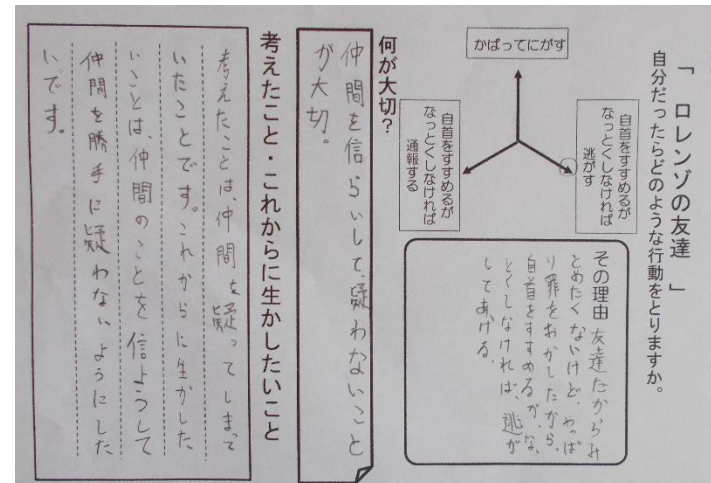 「 ロレンゾの友達 」
自分だったらどのような行動をとりますか。
自首をすすめるが
なっとくしなければ
逃がす
かばってにがす
自首をすすめるが
なっとくしなければ
通報する
その理由 友達だからみ
とめたくないけど、やっぱ
り罪をおかしたから、
自首をすすめるが、な、
とくしなければ、逃が
してあげる。
何が大切?
仲間を信らいして、疑わないこと
が大切。
考えたこと・これからに生かしたいこと
考えたことは、仲間を疑ってしまって
いたことです。これからに生かした
いことは、仲間のことを信ようして
仲間を勝手に疑わないようにした
いです。